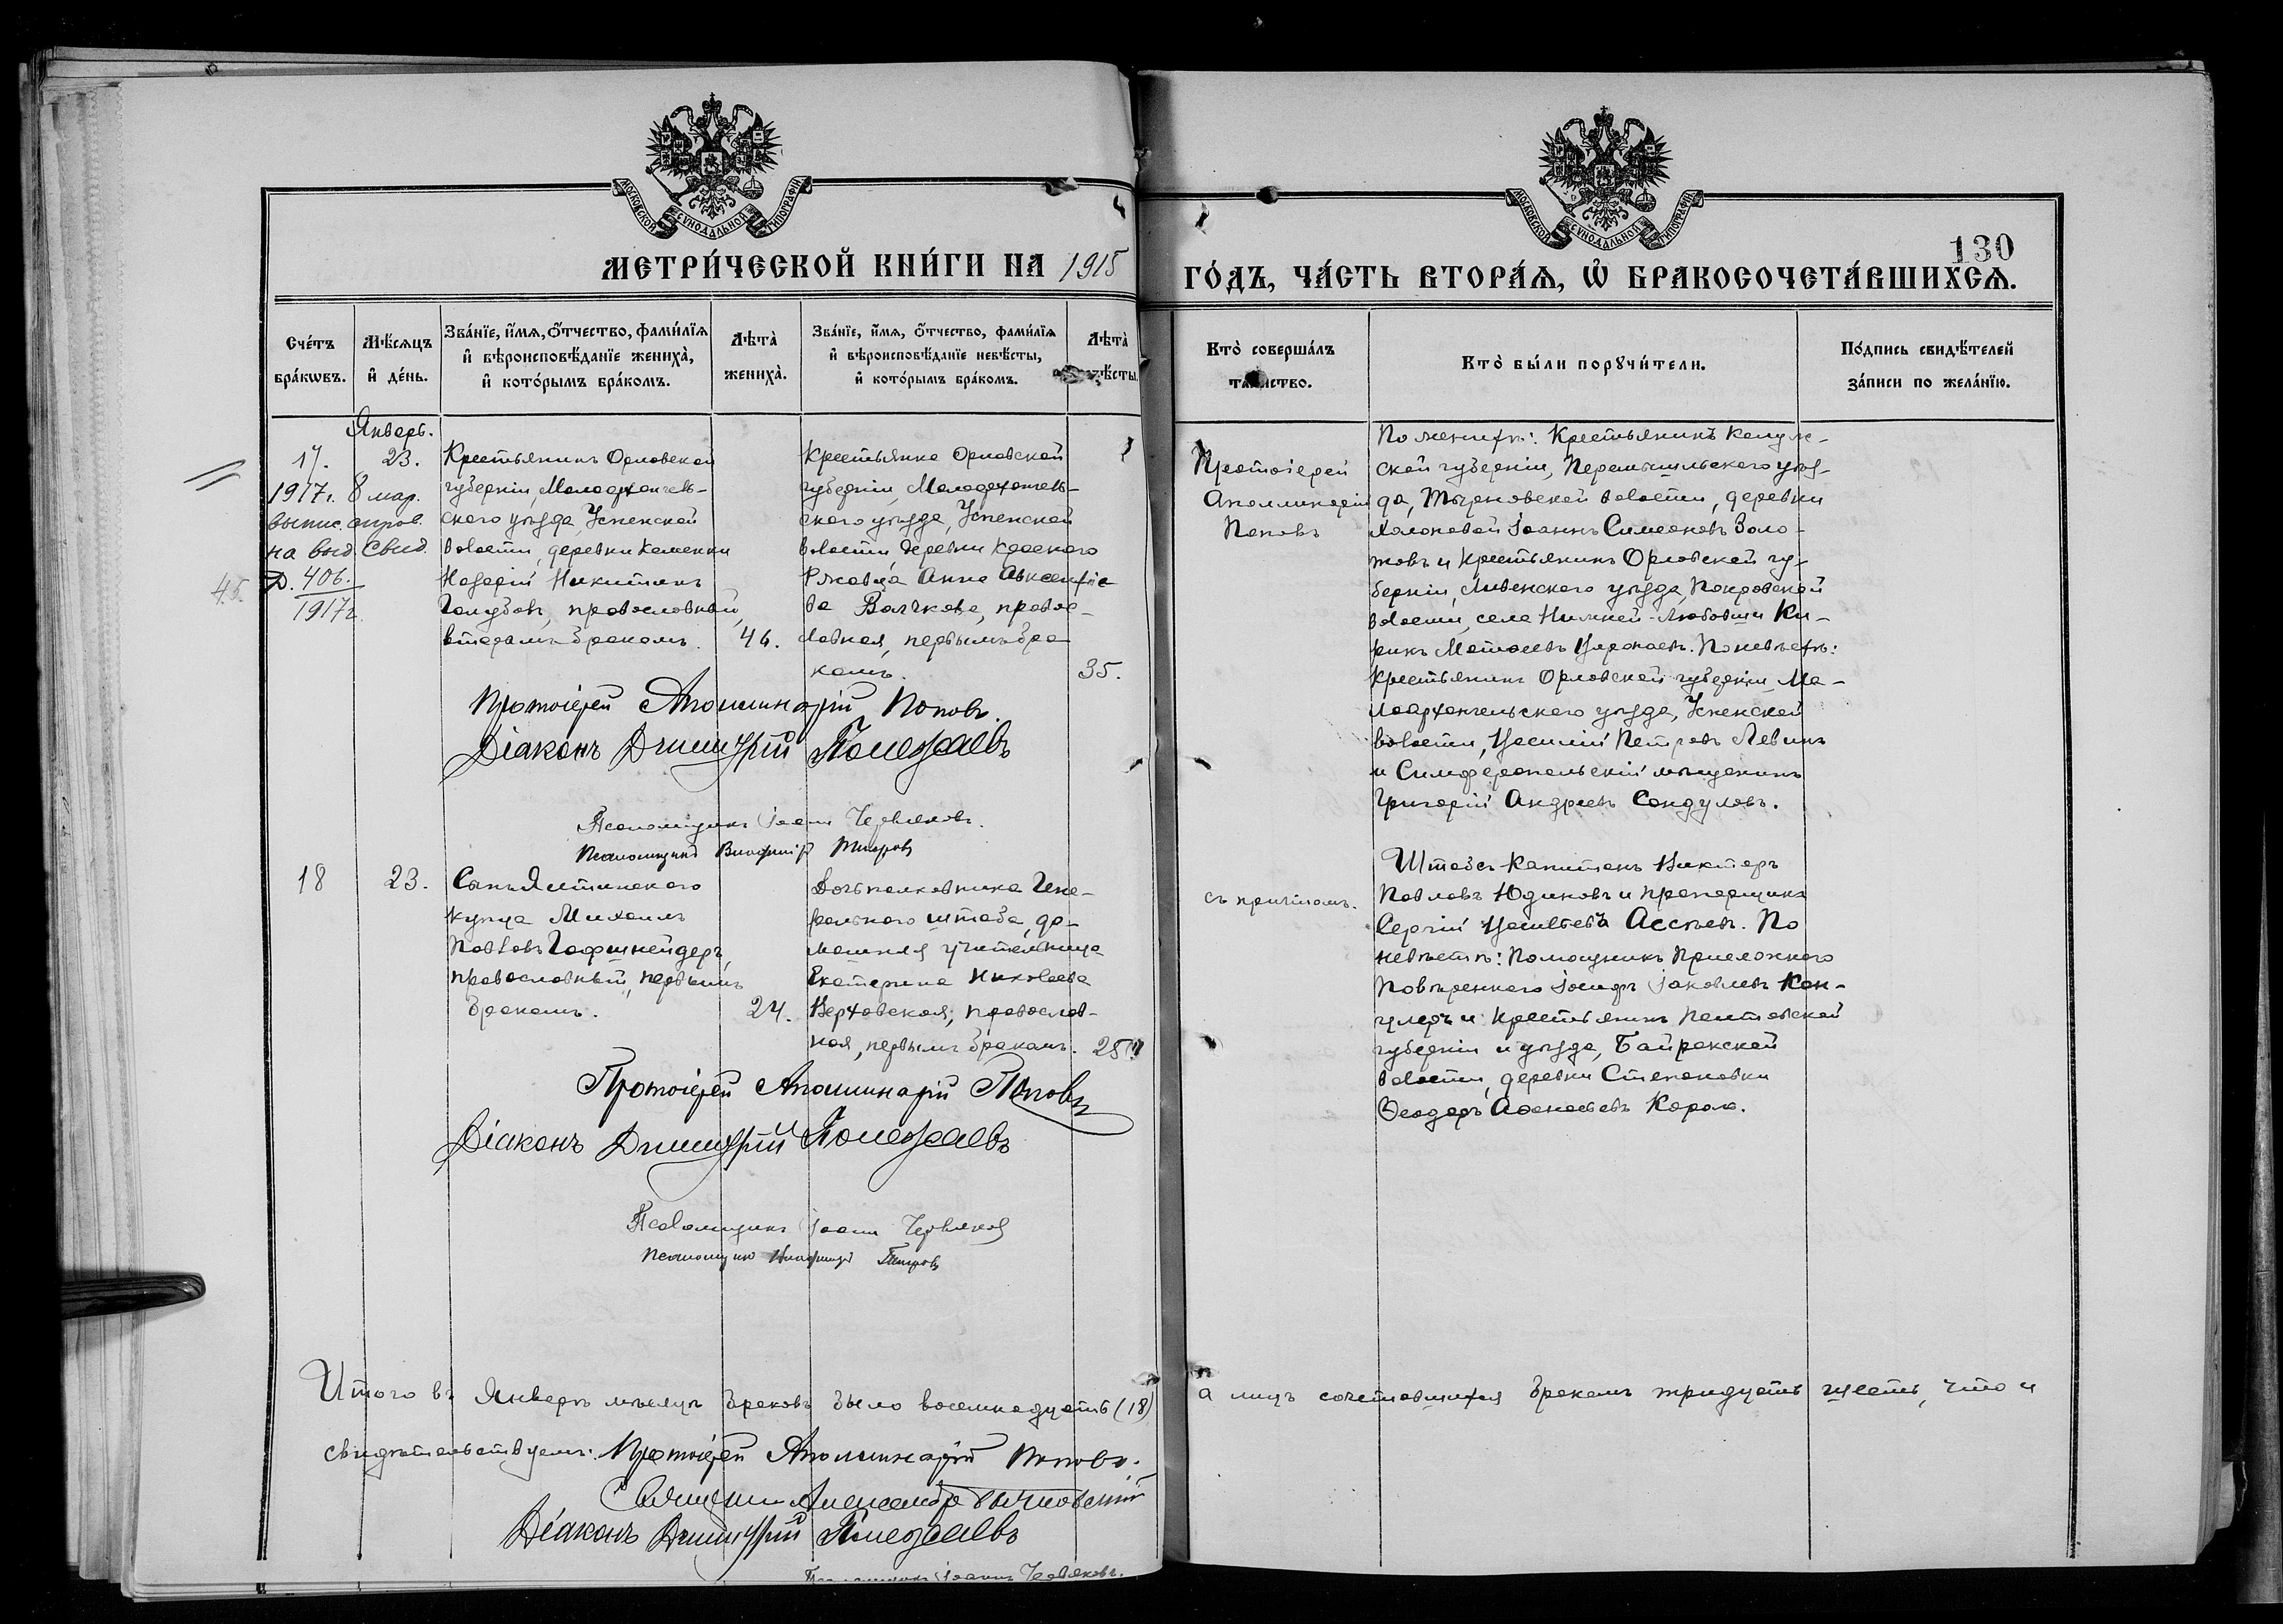 МОСКОВСКОЙ СѴНОДАЛЬНОЙ ТИПОГРАФІИ
МОСКОВСКОЙ СѴНОДАЛЬНОЙ ТИПОГРАФІИ
130
МЕТРИ́ЧЕСКОЙ КНИ́ГИ НА 1915
ГО́ДЪ, ЧА́СТЬ ВТОРА́Ѧ, Ѡ҆ БРАКОСОЧЕТА́ВШИХСѦ.
Сче́тъ бра́кѡвъ.
Мѣ́сѧцъ и҆ де́нь.
Зва́нїе, и҆́мѧ, ѻ҆́тчество, фами́лїѧ и҆ вѣроисповѣ́данїе жениха̀, и҆ кото́рымъ бра́комъ.
Лѣта̀ жениха̀.
Зва́нїе, и҆́мѧ, ѻ҆́тчество, фами́лїѧ и҆ вѣроисповѣ́данїе невѣ́сты, и҆ кото́рымъ бра́комъ.
Лѣта̀ невѣ́сты.
Кто̀ соверша́лъ таинство.
Кто̀ бы́ли порꙋчи́тели.
По́дпись свидѣ́телей за́писи по жела́нїю.
Январь.
17.
23.
1917г. 8 мар.
выпис. аиров.
на выд. свид.
45. D. 406.
1917г.
Крестьянинъ Орловской
губерніи, Малоархангель-
скаго уѣзда, Успенской
волости, деревни Каменки
Назарій Никитинъ
Голубовъ, православный,
вторымъ бракомъ.
46.
Крестьянка Орловской
губерніи, Малоархангель-
скаго уѣзда, Успенской
волости, деревни Красного
Ржавца Анна Авксентіе
ва Волчкова, правос-
лавная, первымъ бра
комъ.
35.
Протоіерей
Аполлинарій
Поповъ
По женихѣ: Крестьянинъ Калуж-
ской губерніи, Перемышльскаго уѣз-
да, волости, деревни
Іоаннъ Симеоновъ Золо-
товъ и крестьянинъ Орловской гу-
берніи, Ливенскаго уѣзда, Покровской
волости, села Нижней-Любовши Ки-
рикъ Матѳеевъ. По невѣстѣ:
Крестьянинъ Орловской губерніи, Ма-
лоархангельскаго уѣзда, Успенской
волости, Василій Петровъ Левинъ
и Симферопольскій мѣщанинъ
Григорій Андреевъ Сандуловъ.
Протоіерей Аполлинарій Поповъ.
Діаконъ Димитрій Полежаевъ
Псаломщикъ Іоаннъ Червяковъ.
Псаломщикъ Владиміръ
18
23.
Сынъ Ялтинскаго
купца Михаилъ
Павловъ Гофшнейдеръ,
православный, первымъ
бракомъ.
24.
Дочь полковника Гене-
ральнаго штаба, до-
машняя учительница
Екатерина Николаева
Верховская, православ-
ная, первымъ бракомъ.
25
съ причтомъ.
Штабсъ-капитанъ Викторъ
Павловъ Юдиновъ и прапорщикъ
Сергій Васильевъ Ассѣевъ. По
невѣстѣ: Помощникъ Присяжнаго
Повѣреннаго Іосифъ Іаковлевъ Кан-
цлеръ и Крестьянинъ Полтавской
губерніи и уѣзда, Байракской
волости, деревни Степановки
Ѳеодоръ Аѳанасьевъ Король.
Протоіерей Аполлинарій Поповъ
Діаконъ Димитрій Полежаевъ
Псаломщикъ Іоаннъ Червяковъ
Псаломщикъ Владиміръ
Итого въ Январѣ мѣсяцѣ браковъ было восемнадцать (18) а лицъ сочетавшихся бракомъ тридцать шесть, что и
свидѣтельствуемъ: Протоіерей Аполлинарій Поповъ.
Священникъ Александръ
Діаконъ Димитрій Полежаевъ
Псаломщикъ Іоаннъ Червяковъ.